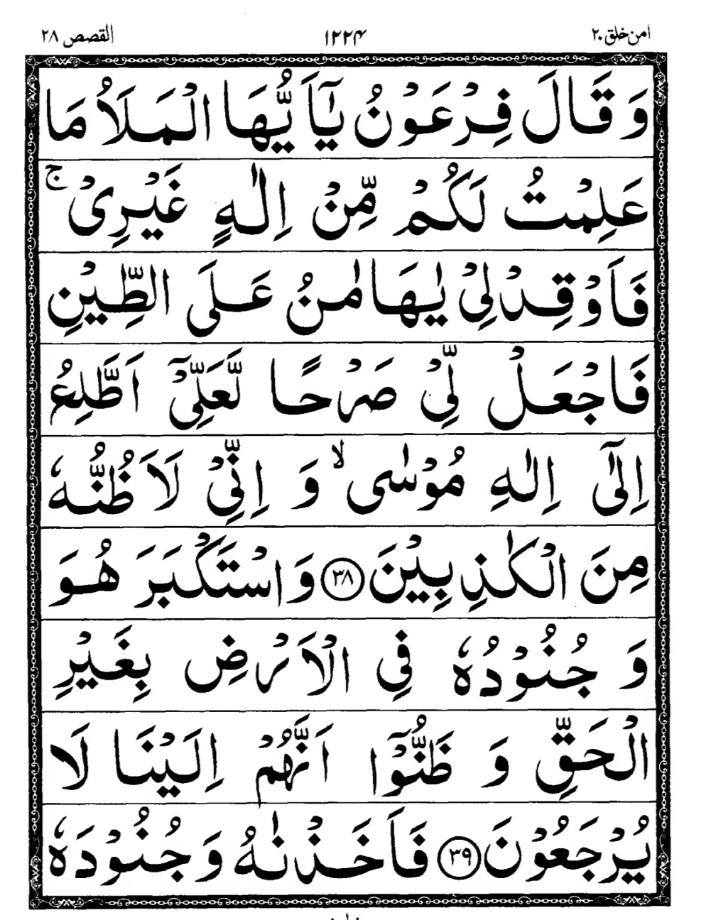 امن خلق ۲۰ ۱۲۲۴ القصص ۲۸
وَ قَالَ فِرْعَوْنُ يٰۤاَيُّهَا الْمَلَاُ مَا
عَلِمْتُ لَكُمْ مِّنْ اِلٰهٍ غَيْرِىْ ۚ
فَاَوْقِدْ لِىْ يٰهَامٰنُ عَلَى الطِّيْنِ
فَاجْعَلْ لِّىْ صَرْحًا لَّعَلِّىْۤ اَطَّلِعُ
اِلٰۤى اِلٰهِ مُوْسٰى ۙ وَ اِنِّىْ لَاَظُنُّهٗ
مِنَ الْكٰذِبِيْنَ ﴿۳۸﴾ وَ اسْتَكْبَرَ هُوَ
وَ جُنُوْدُهٗ فِى الْاَرْضِ بِغَيْرِ
الْحَقِّ وَ ظَنُّوْۤا اَنَّهُمْ اِلَيْنَا لَا
يُرْجَعُوْنَ ﴿۳۹﴾ فَاَخَذْنٰهُ وَ جُنُوْدَهٗ